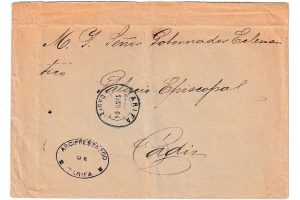 M. Y. Señor Gobernador Eclesiás
tico
Palacio Episcopal
TARIFA
CADIZ
Cádiz
ARCIPRESTAZGO
DE
TARIFA